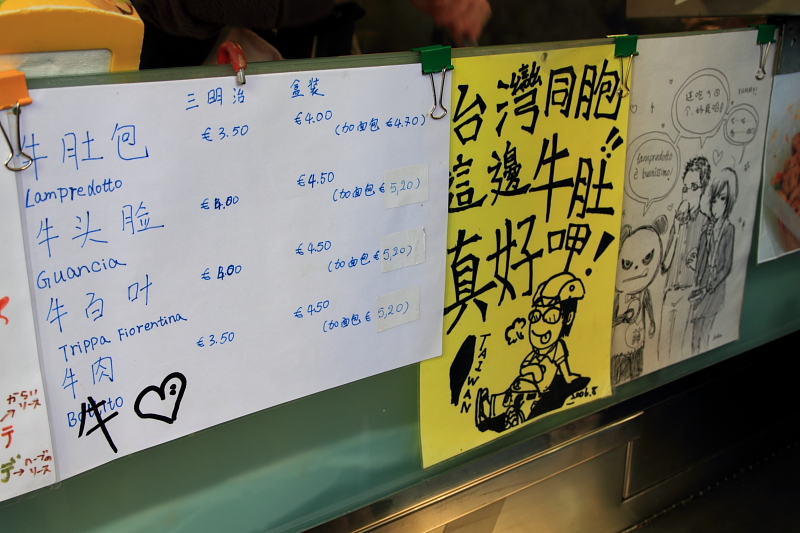 三明治 盒装
牛肚包 €3.50 €4.00 (加面包 €4.70)
Lampredotto
牛头脸 €4.00 €4.50 (加面包 €5,20)
Guancia
牛百叶 €4.00 €4.50 (加面包 €5,20)
Trippa Fiorentina
牛肉 €3.50 €4.50 (加面包 €5,20)
Bollito
牛
台灣同胞!!
這邊牛肚
真好呷!
TAIWAN
2006.8
lampredotto
è buonissimo!
からい
ソース
ハーブの
ソース